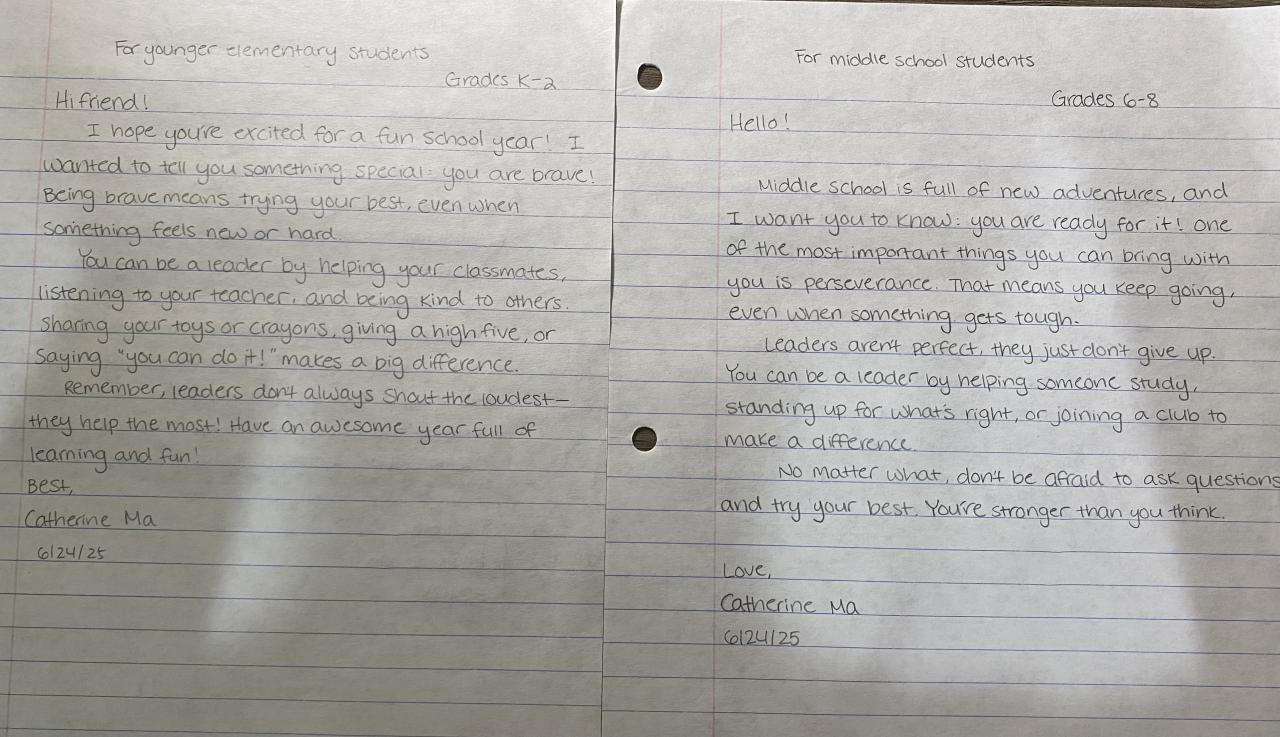 For younger elementary students
Grades K-2
Hi friend!
I hope you're excited for a fun school year! I
wanted to tell you something special: you are brave!
Being brave means trying your best, even when
something feels new or hard.
You can be a leader by helping your classmates,
listening to your teacher, and being kind to others.
Sharing your toys or crayons, giving a high five, or
saying "you can do it!" makes a big difference.
Remember, leaders don't always shout the loudest—
they help the most! Have an awesome year full of
learning and fun!
Best,
Catherine Ma
6/24/25
For middle school students
Grades 6-8
Hello!
Middle school is full of new adventures, and
I want you to know: you are ready for it! One
of the most important things you can bring with
you is perseverance. That means you keep going,
even when something gets tough.
Leaders aren't perfect, they just don't give up.
You can be a leader by helping someone study,
standing up for what's right, or joining a club to
make a difference.
No matter what, don't be afraid to ask questions
and try your best. You're stronger than you think.
Love,
Catherine Ma
6/24/25